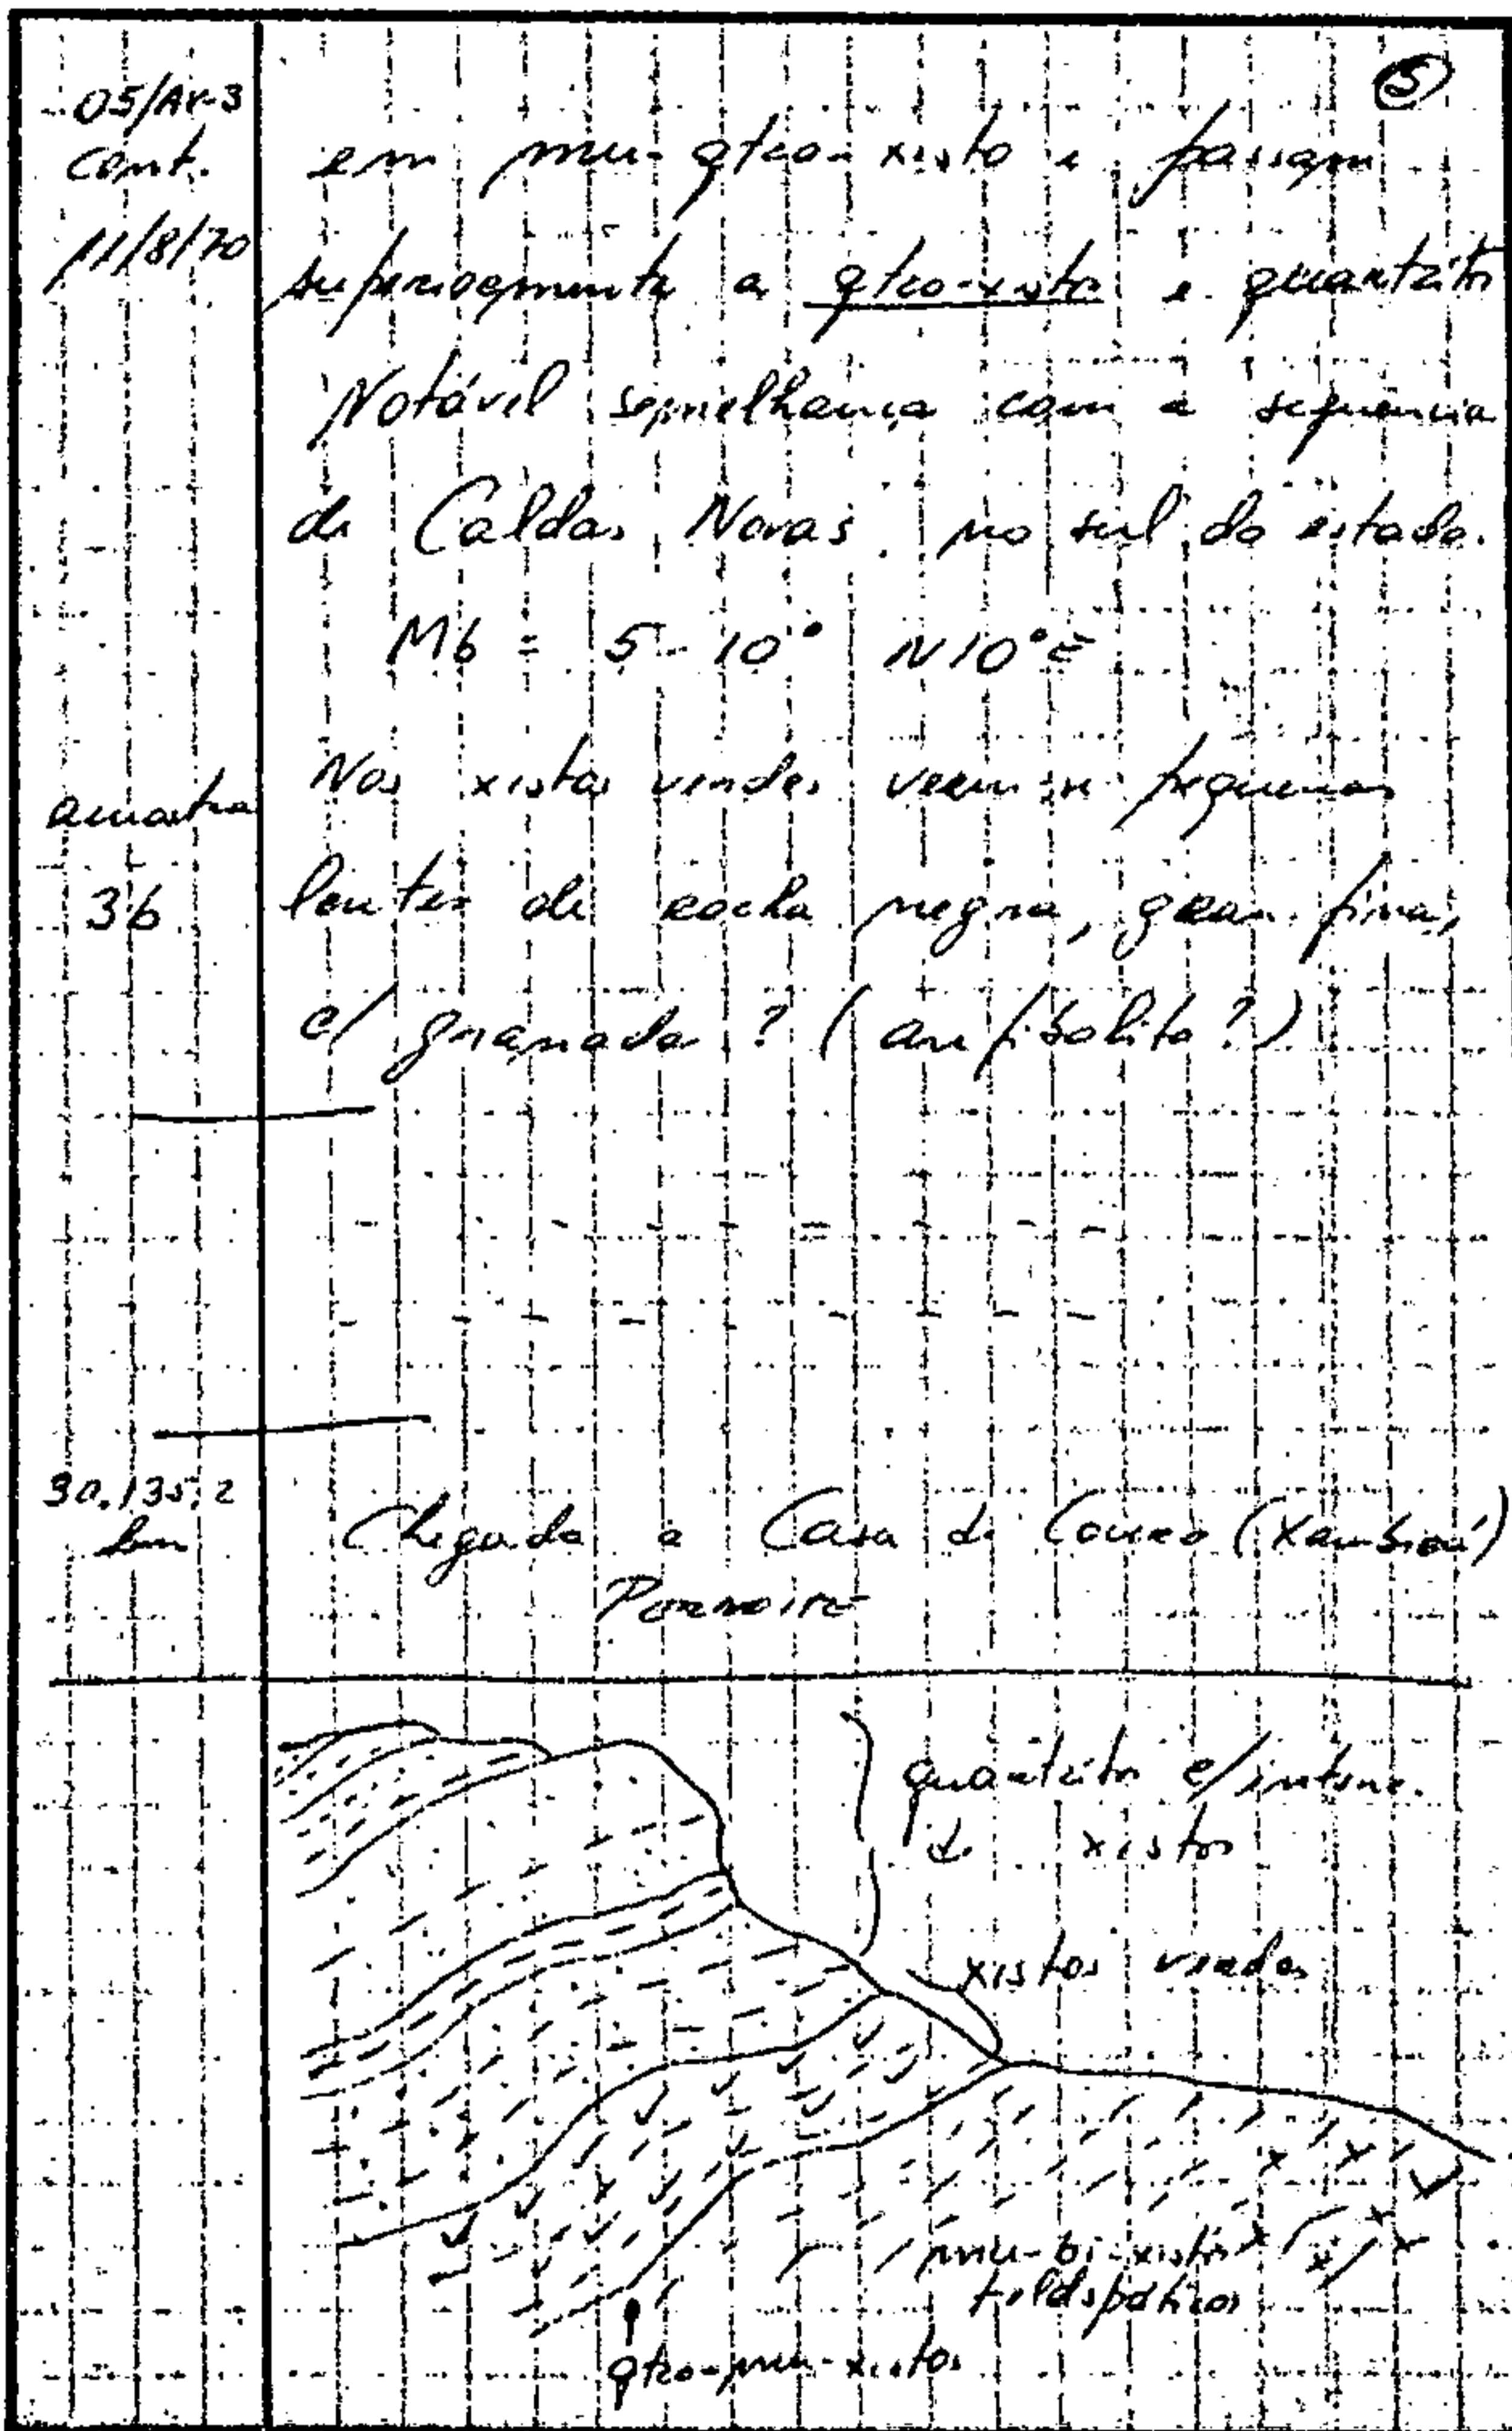 ⑤
05/AR-3
cont.
11/8/70
em mu-qtzo-xisto e passam
superiormente a qtzo-xisto e quartzito
Notável semelhança com a sequência
de Caldas Novas, no sul do estado.
Mb = 5-10° N10°E
amostra
36
Nos xistos verdes veem se pequenas
lentes de rocha negra, gran. fina,
c/ granada? (anfibolito?)
30.135,2
km
Chegada a Casa de Couro (Xambioá)
Pernoite
quartzitos c/ interc.
de xistos
xistos verdes
mu-bi-xistos
feldspáticos
qtzo-mu-xistos